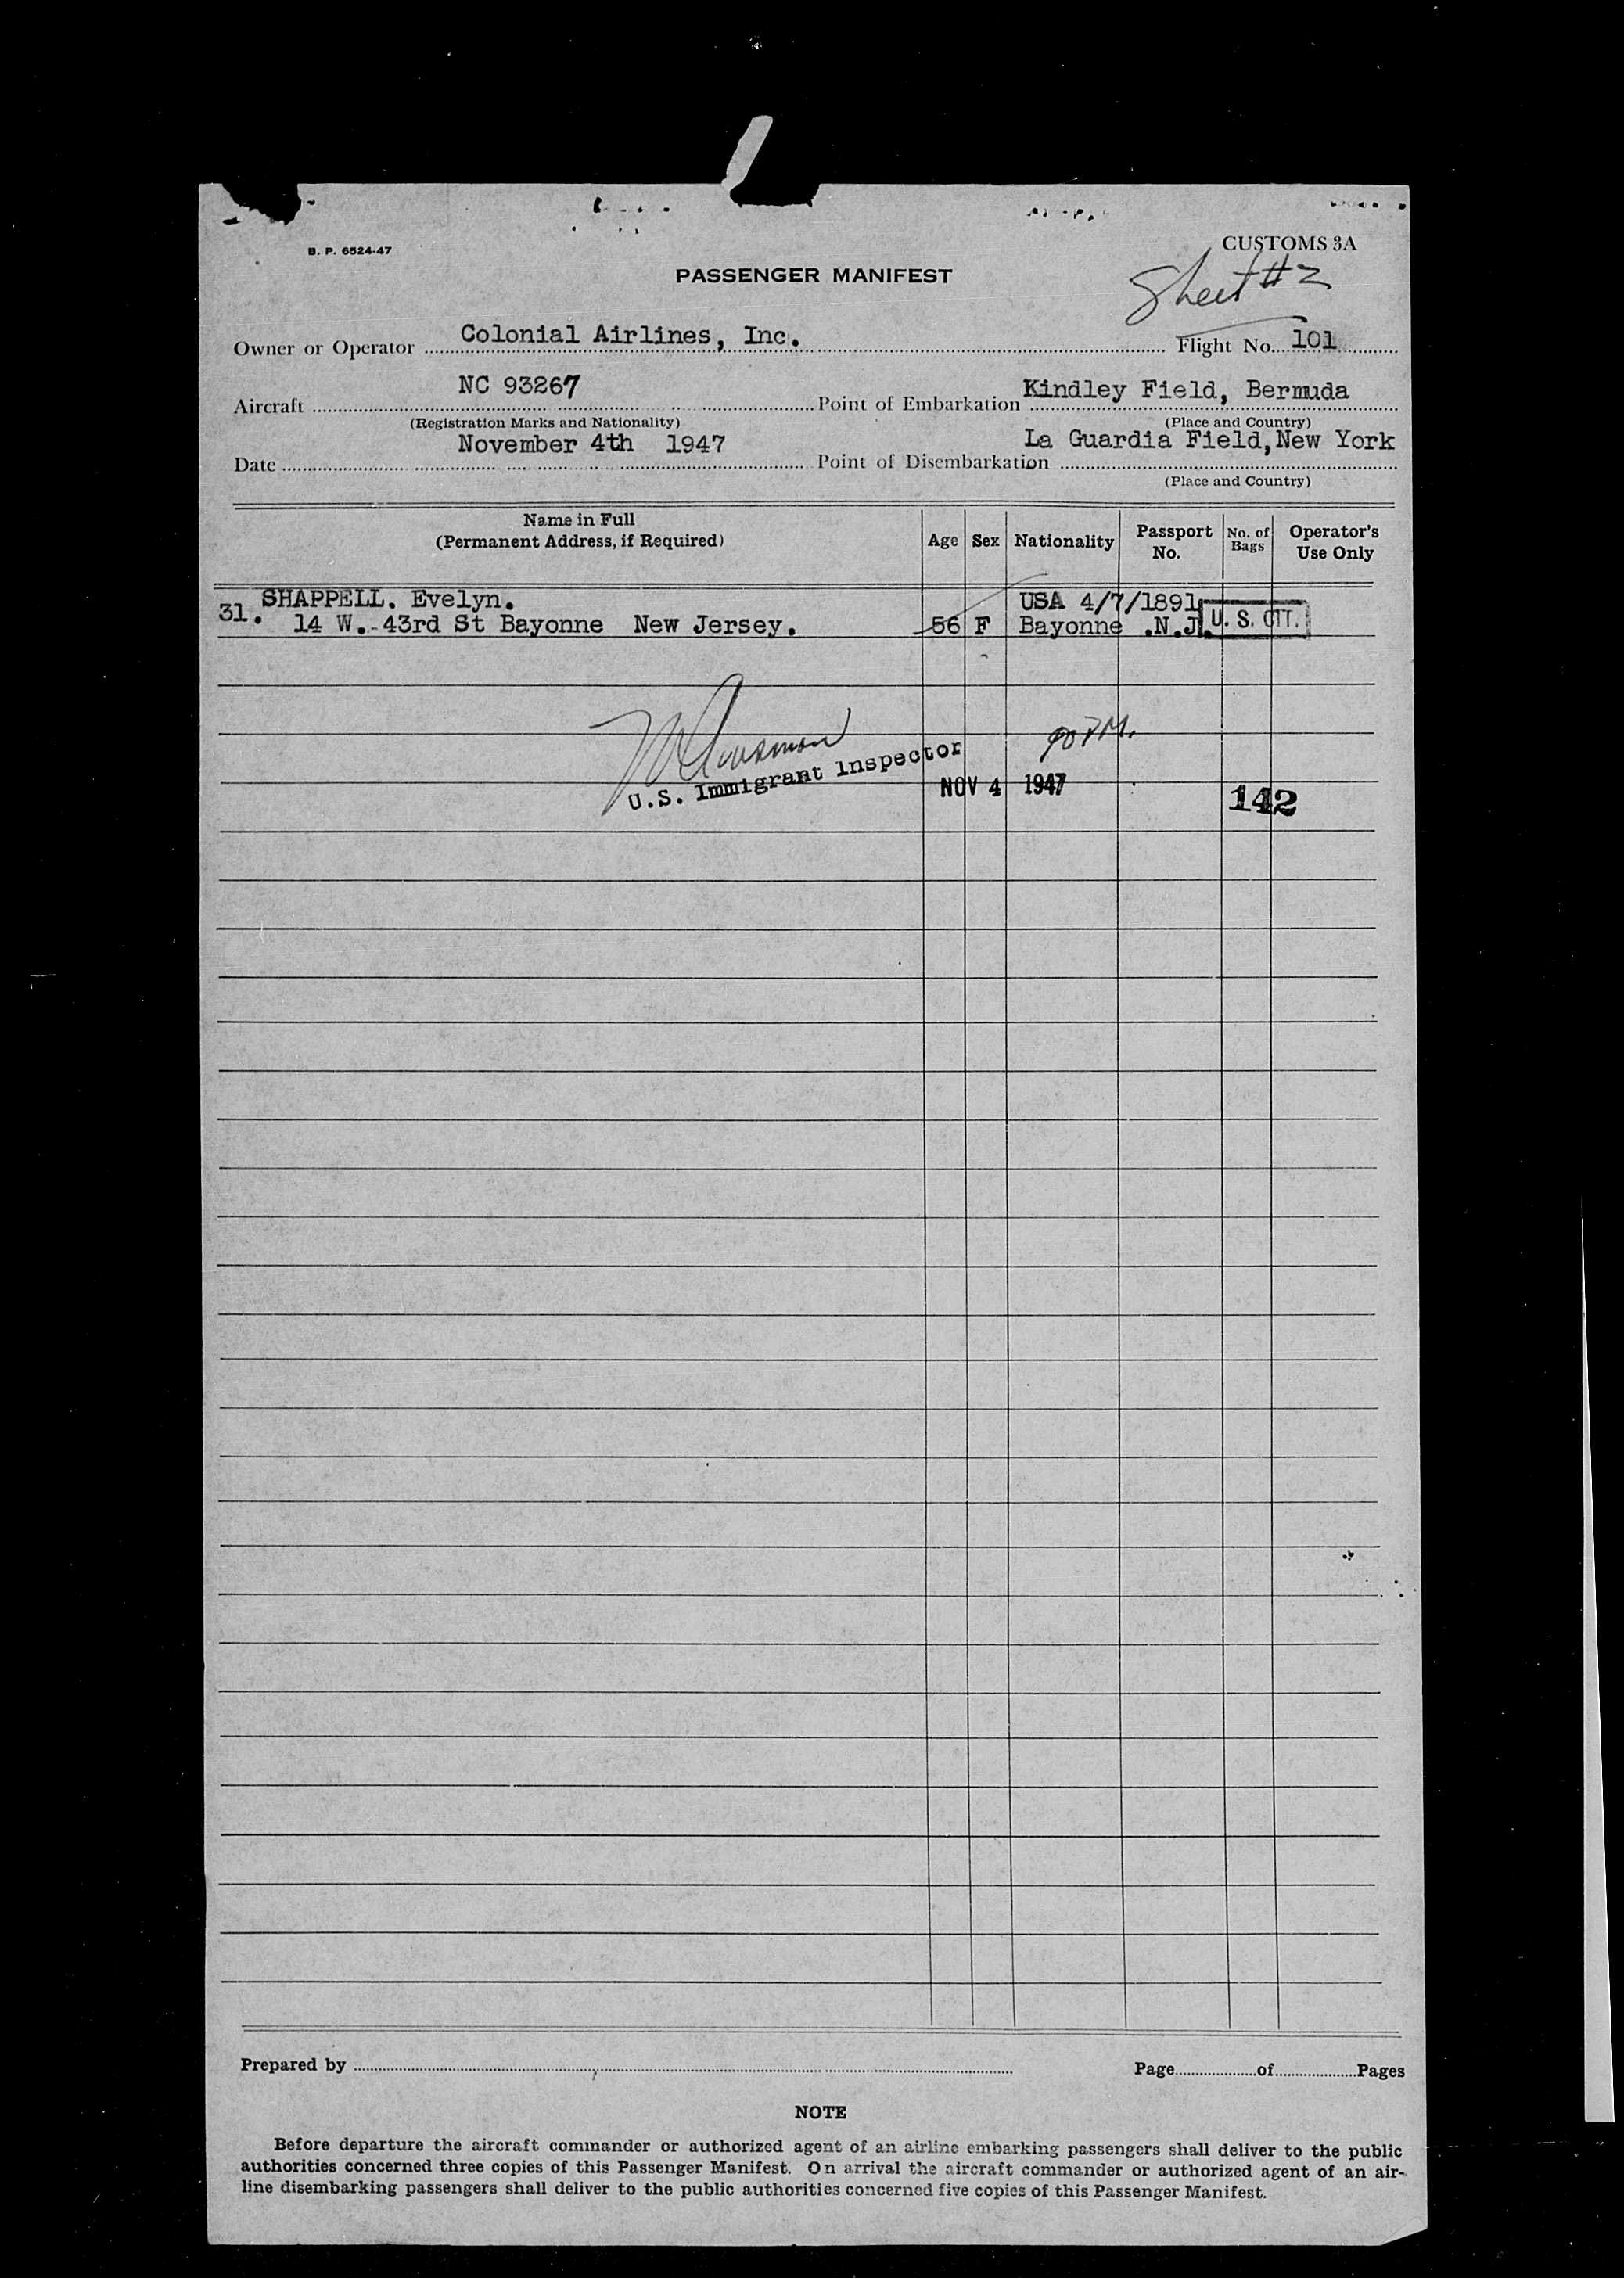 B. P. 6524-47
CUSTOMS 3A
PASSENGER MANIFEST
Sheet #2
Owner or Operator Colonial Airlines, Inc. Flight No. 101
Aircraft NC 93267 Point of Embarkation Kindley Field, Bermuda
(Registration Marks and Nationality) (Place and Country)
Date November 4th 1947 Point of Disembarkation La Guardia Field, New York
(Place and Country)
Name in Full
(Permanent Address, if Required)
Age Sex Nationality Passport No. No. of Bags Operator's Use Only
SHAPPELL. Evelyn. USA 4/7/1891
31. 14 W. 43rd St Bayonne New Jersey. 56 F Bayonne .N.J. U. S. CIT.
U.S. Immigrant Inspector
NOV 4 1947
142
Prepared by Page of Pages
NOTE
Before departure the aircraft commander or authorized agent of an airline embarking passengers shall deliver to the public
authorities concerned three copies of this Passenger Manifest. On arrival the aircraft commander or authorized agent of an air-
line disembarking passengers shall deliver to the public authorities concerned five copies of this Passenger Manifest.